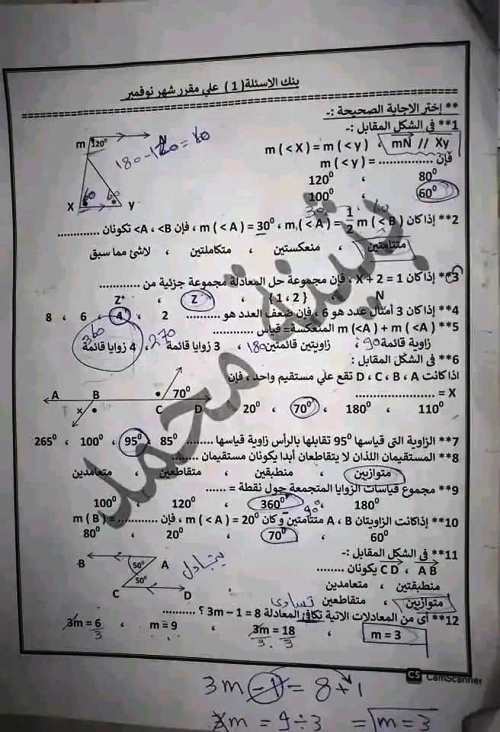 بنك الاسئلة ( 1 ) علي مقرر شهر نوفمبر
** إختر الاجابة الصحيحة :-
1** فى الشكل المقابل :-
mN // Xy ، m ( < X ) = m ( < y )
فإن ............... = m ( < y )
80⁰ ، 120⁰
60⁰ ، 100⁰
m 120⁰ N
X y
60 60
180 - 120 = 60
2** إذا كان m ( < A ) = 1/2 m ( < B ) ، m ( < A ) = 30⁰ ، فإن A , <B> تكونان ............
متتامتين ، منعكستين ، متكاملتين ، لاشئ مما سبق
3** إذا كان X + 2 = 1 ، فإن مجموعة حل المعادلة مجموعة جزئية من ............
N ، { 1 , 2 } ، Z⁻ ، Z⁺
4** إذا كان 3 أمثال عدد هو 6 ، فإن ضعف العدد هو ............ 2 ، 4 ، 6 ، 8
5** m (<A) + m (<A) المنعكسة = قياس ............
زاوية قائمة ، زاويتين قائمتين ، 3 زوايا قائمة ، 4 زوايا قائمة
90 180 270 360
6** فى الشكل المقابل :
اذا كانت D ، C ، B ، A تقع علي مستقيم واحد ، فإن
X = ..................
110⁰ ، 180⁰ ، 70⁰ ، 20⁰
A B C D 70⁰ x
7** الزاوية التى قياسها 95⁰ تقابلها بالرأس زاوية قياسها ........ 85⁰ ، 95⁰ ، 100⁰ ، 265⁰
8** المستقيمان اللذان لا يتقاطعان أبدا يكونان مستقيمان ........
متوازيين ، منطبقين ، متقاطعين ، متعامدين
9** مجموع قياسات الزوايا المتجمعة حول نقطة = ......
180⁰ ، 360⁰ ، 120⁰ ، 100⁰
90
10** إذا كانت الزاويتان A ، B متتامتين و كان m ( < A ) = 20⁰ ، فإن ............ = m ( B )
60⁰ ، 70⁰ ، 20⁰ ، 80⁰
11** فى الشكل المقابل :-
CD ، AB يكونان ........
منطبقتين ، متعامدين
متوازيين ، متقاطعين
B A 50⁰
C D 50⁰
بتبادل
تساوى
12** أى من المعادلات الاتية تكافئ المعادلة 3m – 1 = 8 ؟ ........
m = 3 ، 3m = 18 ، m = 9 ، 3m = 6
3 3 3
CS CamScanner
3m - 1 = 8 + 1
3m = 9 ÷ 3 = m = 3